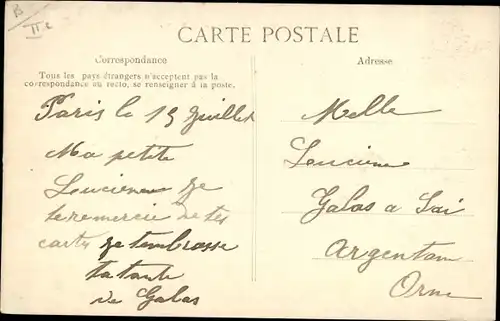 B
IIe
CARTE POSTALE
Correspondance
Tous les pays étrangers n'acceptent pas la
correspondance au recto, se renseigner à la poste.
Paris le 15 Juillet
Ma petite
Lucienne je
te remercie de tes
carte je t'embrasse
ta tante
de Galas
Adresse
Melle
Lucienne
Galas a Sai
Argentan
Orne